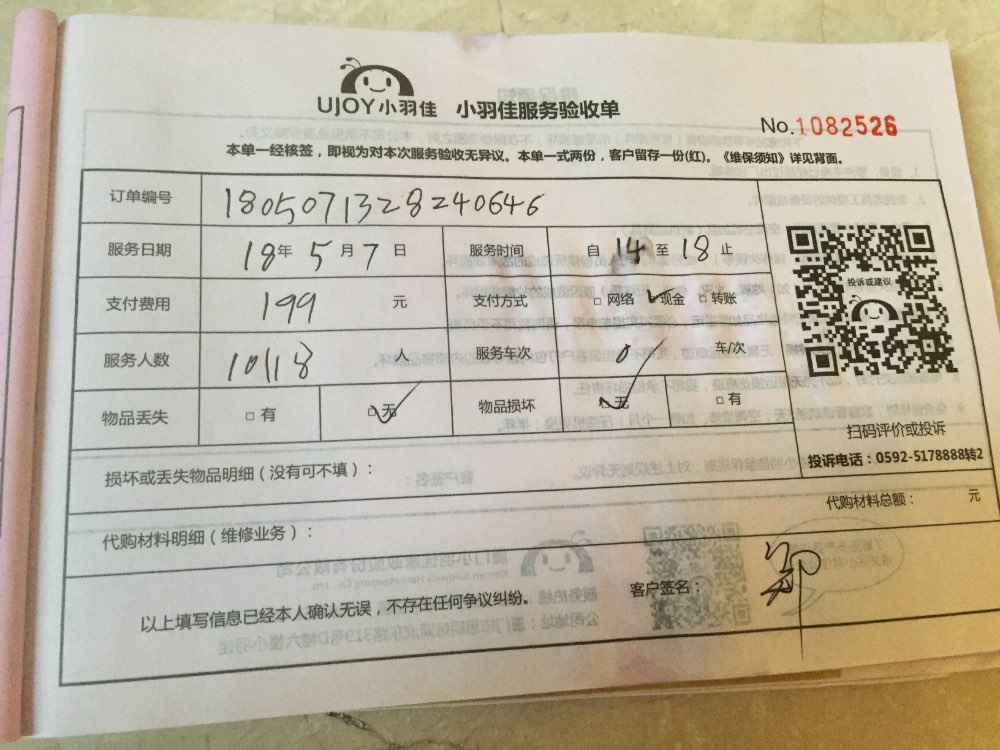 UJOY小羽佳 小羽佳服务验收单
No.1082526
本单一经核签，即视为对本次服务验收无异议。本单一式两份，客户留存一份(红)。《维保须知》详见背面。
订单编号 180507132824064​6
服务日期 18年 5 月 7 日 服务时间 自 14 至 18 止
支付费用 199 元 支付方式 □ 网络 现金 □ 转账
服务人数 10118 人 服务车次 0 车/次
物品丢失 □ 有 □ 无 物品损坏 □ 无 □ 有
投诉或建议
扫码评价或投诉
投诉电话：0592-5178888转2
损坏或丢失物品明细（没有可不填）：
代购材料明细（维修业务）： 代购材料总额： 元
以上填写信息已经本人确认无误，不存在任何争议纠纷。 客户签名： 郑